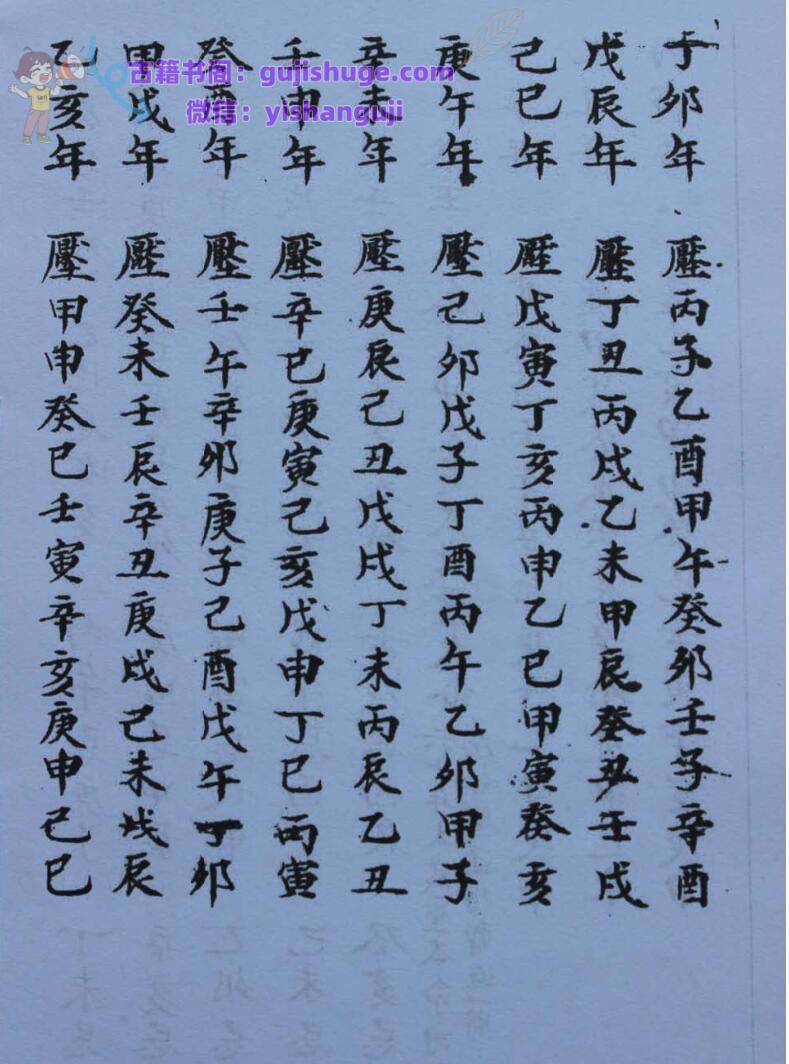 丁卯年 壓丙子乙酉甲午癸卯壬子辛酉
戊辰年 壓丁丑丙戌乙未甲辰癸丑壬戌
己巳年 壓戊寅丁亥丙申乙巳甲寅癸亥
庚午年 壓己卯戊子丁酉丙午乙卯甲子
辛未年 壓庚辰己丑戊戌丁未丙辰乙丑
壬申年 壓辛巳庚寅己亥戊申丁巳丙寅
癸酉年 壓壬午辛卯庚子己酉戊午丁卯
甲戌年 壓癸未壬辰辛丑庚戌己未戊辰
乙亥年 壓甲申癸巳壬寅辛亥庚申己巳
古籍书阁：gujishuge.com
微信：yishanguji